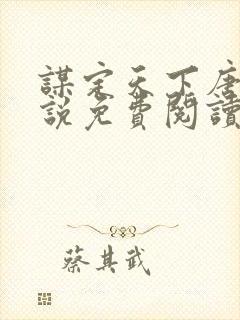 謀定天下唐
說免費閱讀
蔡其武